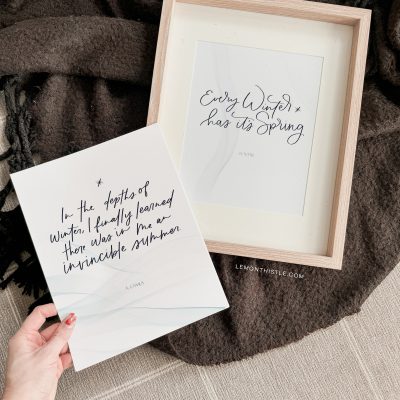 Every Winter
has its Spring
In the depths of
Winter, I finally learned
there was in me an
invincible summer.
LEMONTHISTLE.COM